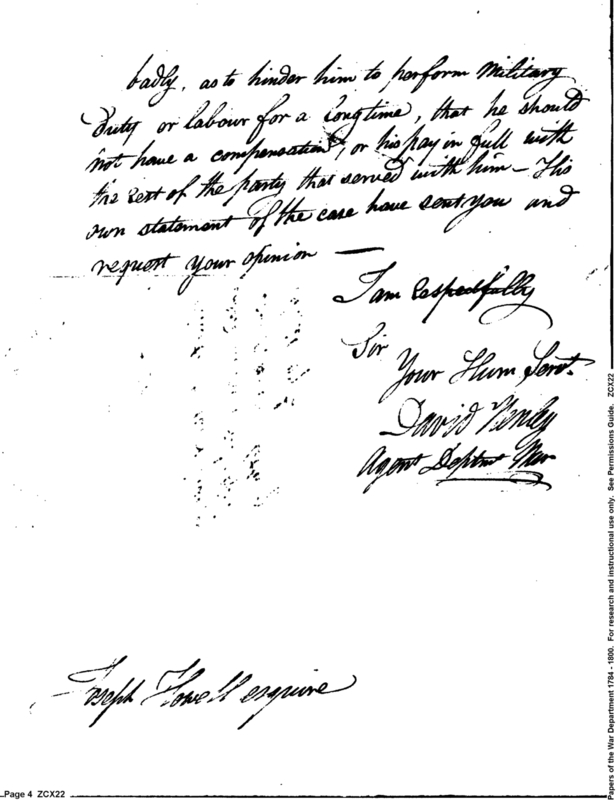 badly, as to hinder him to perform Military
Duty or labour for a longtime, that he should
not have a compensation, or his pay in full with
the rest of the party that served with him – His
own statement of the case have sent you and
request your opinion —
I am respectfully
Sir
Your Hum Servt.
David Henley
Agent Deptmt War
Joseph Howell esquire
Page 4 ZCX22
Papers of the War Department 1784 - 1800. For research and instructional use only. See Permissions Guide. ZCX22